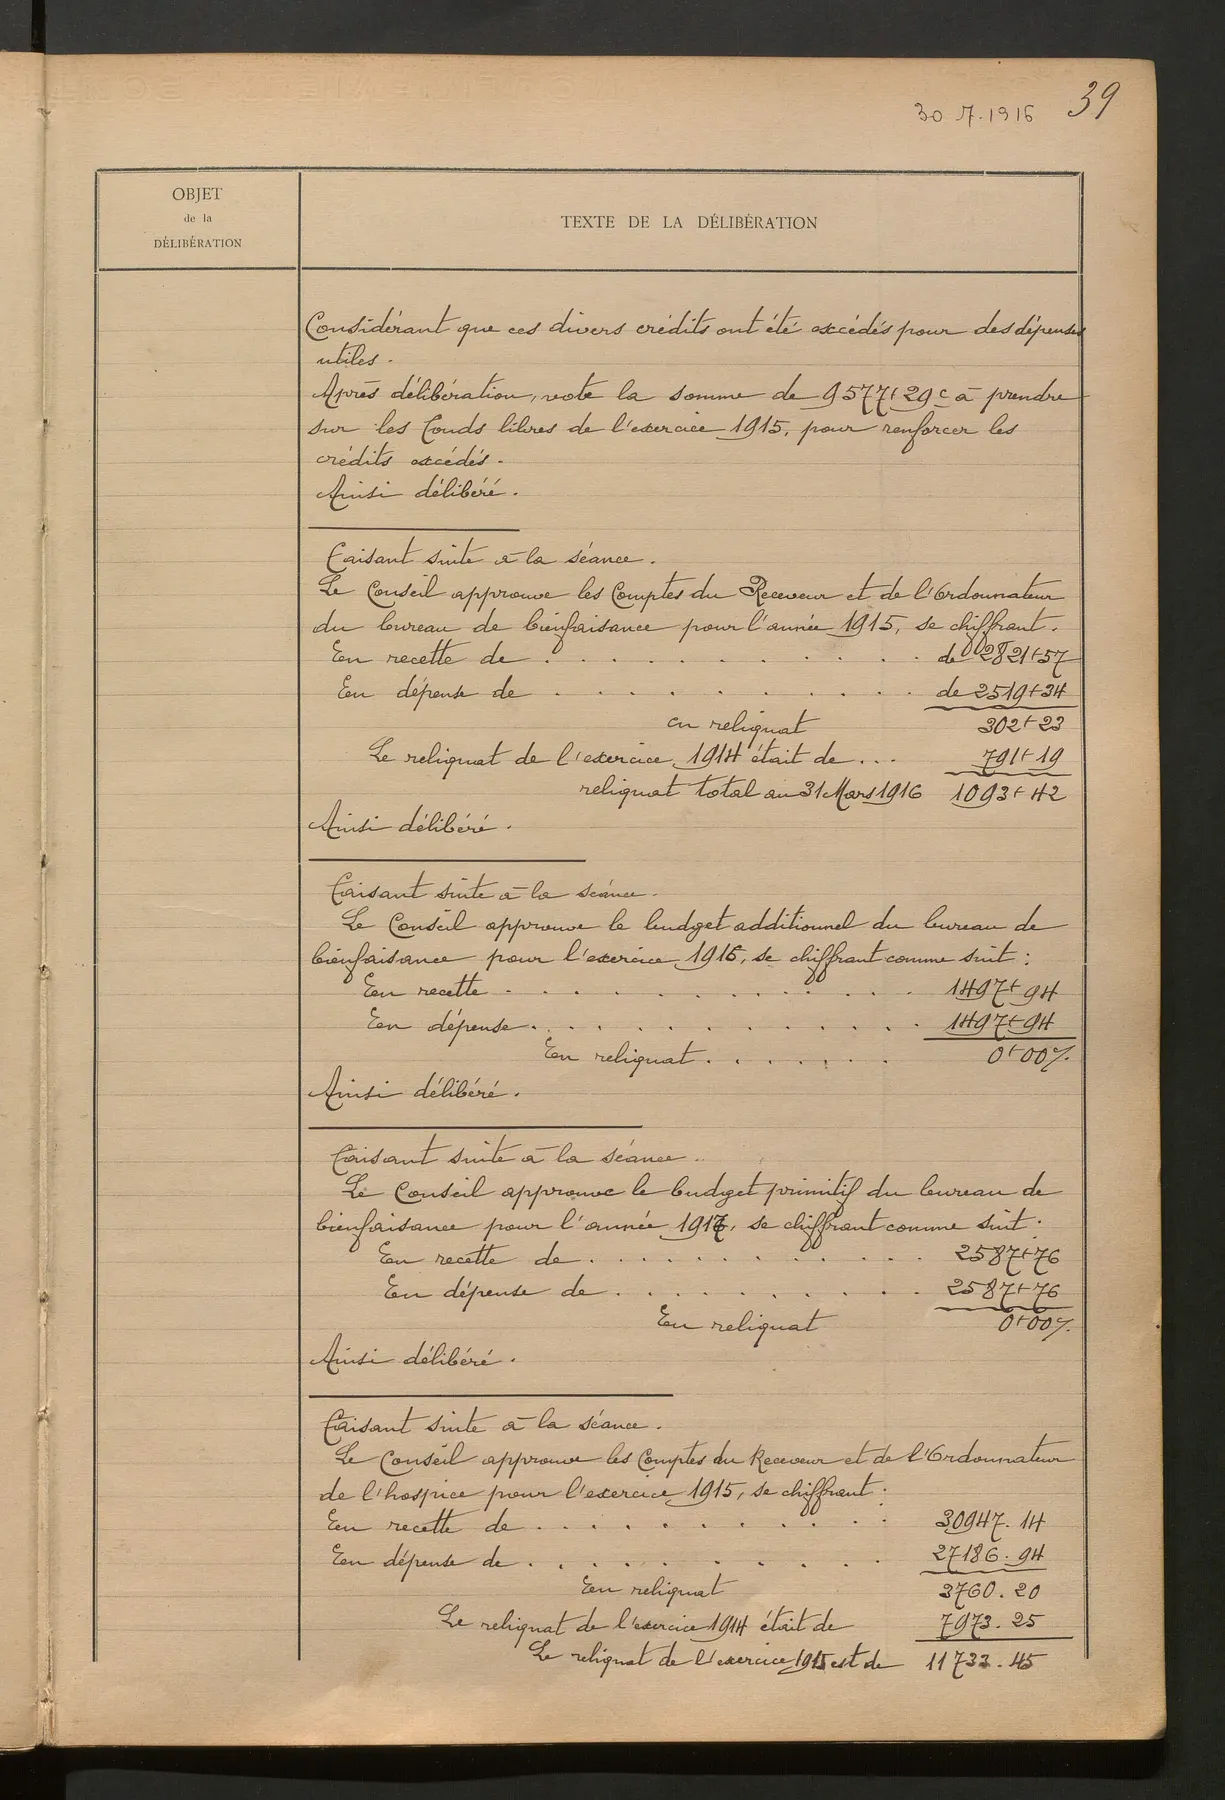 30.7.1916 39
OBJET
de la
DÉLIBÉRATION
TEXTE DE LA DÉLIBÉRATION
Considérant que ces divers crédits ont été excédés pour des dépenses
utiles.
Après délibération, vote la somme de 9577f 29c à prendre
sur les fonds libres de l'exercice 1915, pour renforcer les
crédits excédés.
Ainsi délibéré.
Faisant suite à la séance.
Le Conseil approuve les Comptes du Receveur et de l'Ordonnateur
du bureau de bienfaisance pour l'année 1915, se chiffrant.
En recette de . . . . . . . . . . . de 2821f57
En dépense de . . . . . . . . . . . de 2519f34
en reliquat 302f23
Le reliquat de l'exercice 1914 était de . . . 791f19
reliquat total au 31 Mars 1916 1093f42
Ainsi délibéré.
Faisant suite à la séance.
Le Conseil approuve le budget additionnel du bureau de
bienfaisance pour l'exercice 1916, se chiffrant comme suit :
En recette . . . . . . . . . . . 1497f94
En dépense . . . . . . . . . . . 1497f94
En reliquat . . . . . . . 0f00%
Ainsi délibéré.
Faisant suite à la séance.
Le Conseil approuve le budget primitif du bureau de
bienfaisance pour l'année 1917, se chiffrant comme suit :
En recette de . . . . . . . . . . 2587f76
En dépense de . . . . . . . . . . 2587f76
En reliquat 0f00%
Ainsi délibéré.
Faisant suite à la séance.
Le Conseil approuve les Comptes du Receveur et de l'Ordonnateur
de l'hospice pour l'exercice 1915, se chiffrant :
En recette de . . . . . . . . . . . 30947.14
En dépense de . . . . . . . . . . . 27186.94
En reliquat 3760.20
Le reliquat de l'exercice 1914 était de 7973.25
Le reliquat de l'exercice 1915 est de 11733.45